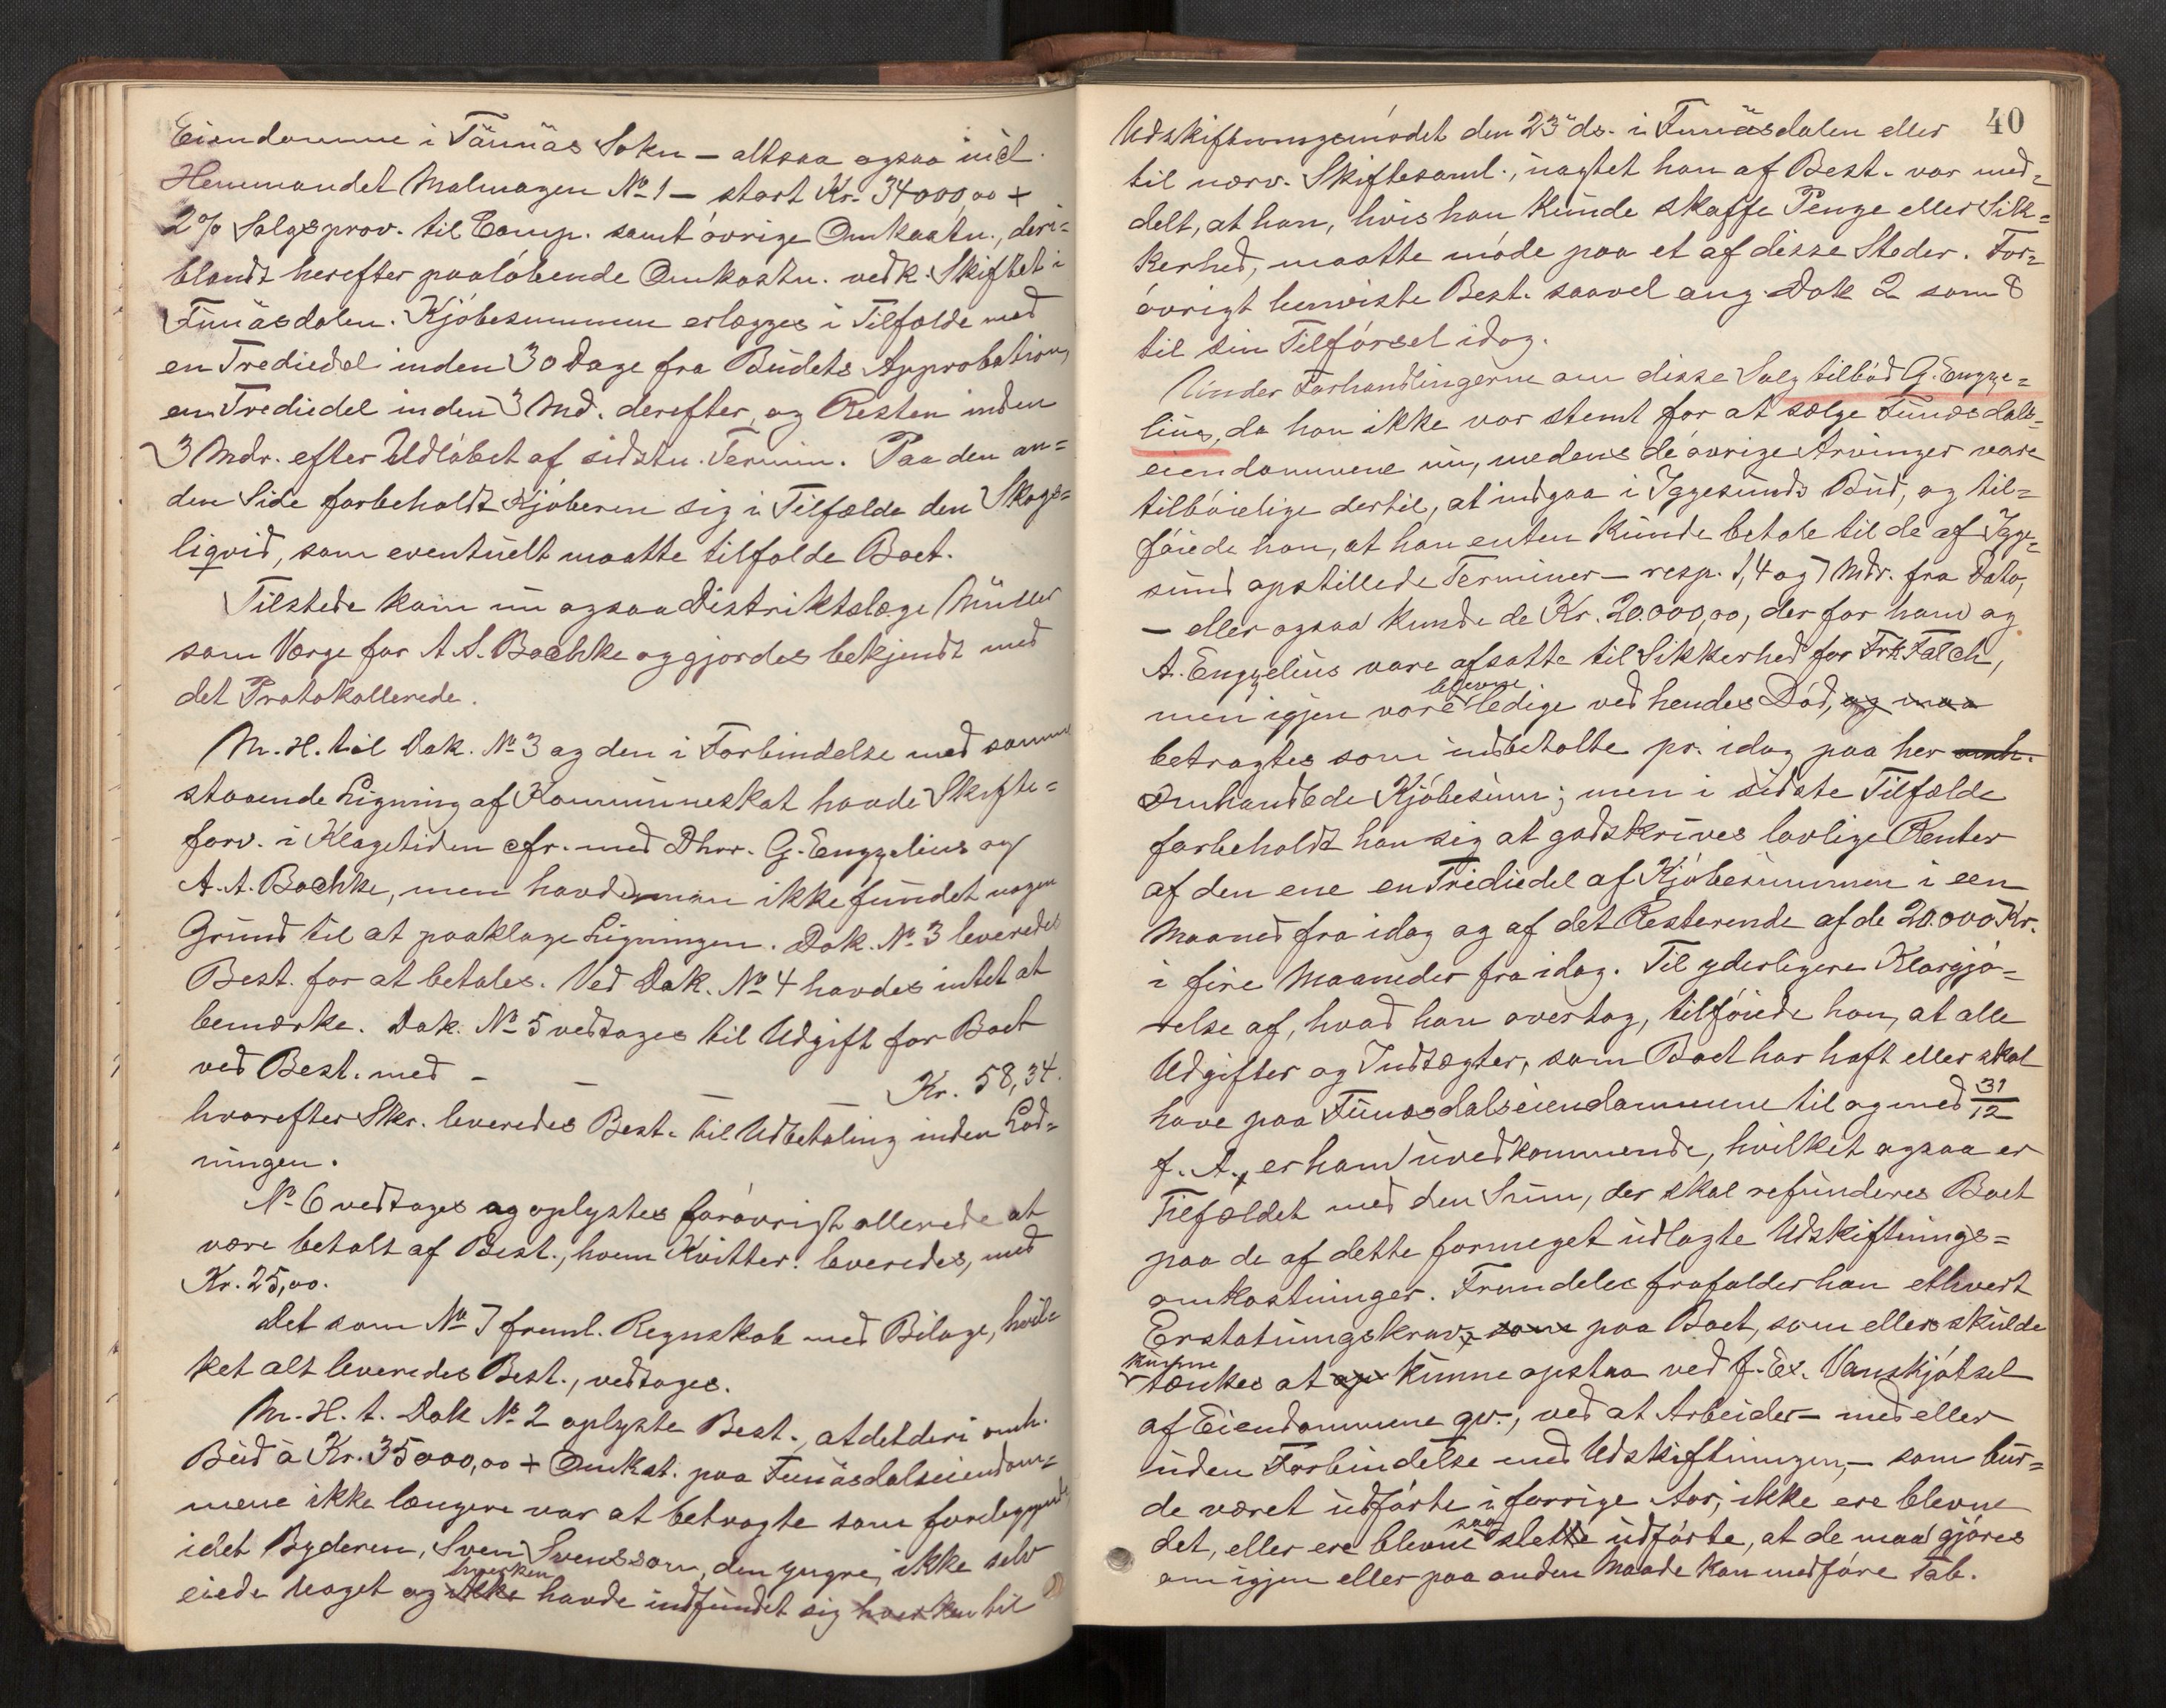 Eiendomme i Tännäs Sokn - altsaa ogsaa incl.
Hemmandet Malmagen No 1 - stort Kr. 34000,00 +
2% Salgsprov. til Comp. samt óvrige Omkostn., deri=
blandt herefter paalóbende Omkostn. vedk. Skiftet i
Funäsdalen. Kjóbesummen erlægges i Tilfælde med
en Trediedel inden 30 Dage fra Budets Approbation,
en Trediedel inden 3 Md. derefter, og Resten inden
3 Mdr. efter Udlóbet af sidstn. Termin. Paa den an=
den Side forbeholdt Kjóberen sig i Tilfælde den Skogs=
liqvid, som eventuelt maatte tilfalde Boet.
Tilstede kom nu ogsaa Distriktslæge Müller
som Værge for A. S. Bachke og gjordes bekjendt med
det Protokollerede.
M. H. til Dok. No 3 og den i Forbindelse med samme
staaende Ligning af Kommuneskat havde Skifte=
forv. i Klagetiden cfr. med Dhrr. G. Engzelius og
A. A. Bachke, men havde man ikke fundet nogen
Grund til at paaklage Ligningen. Dok. No 3 leveredes
Best. for at betales. Ved Dok. No 4 havdes intet at
bemærke. Dok. No 5 vedtoges til Udgift for Boet
ved Best. med - - - Kr. 58,34.
hvorefter Skr. leveredes Best. til Udbetaling inden Lod=
ningen.
No 6 vedtoges og oplystes foróvrigt allerede at
være betalt af Best., hvem Kvitter. leveredes, med
Kr. 25,00.
Det som No 7 freml. Regnskab med Bilage, hvil=
ket alt leveredes Best., vedtoges.
M. H. t. Dok No 2 oplyste Best., at det deri omh.
Bud à Kr. 35000,00 + Omkst. paa Funäsdalseiendom=
mene ikke længere var at betragte som foreliggende,
idet Byderen, Sven Svensson, den yngre, ikke selv
hverken
eiede Noget og ikke havde indfundet sig hverken til
40
Udskiftningsmódet den 23' ds. i Funäsdalen eller
til nærv. Skiftesaml., uagtet han af Best. var med=
delt, at han, hvis han kunde skaffe Penge eller Sik=
kerhed, maatte móde paa et af disse Steder. For=
óvrigt henviste Best. saavel ang. Dok 2 som 8
til sin Tilfórsel idag.
Under Forhandlingerne om disse Salg tilbód G. Engze=
lius, da han ikke var stemt for at sælge Funæsdals=
eiendommene nu, medens de óvrige Arvinger vare
tilbóielige dertil, at indgaa i Iggesunds Bud, og til=
fóiede han, at han enten kunde betale til de af Igge=
sund opstillede Terminer - resp. 1, 4 og 7 Mdr. fra Dato,
- eller ogsaa kunde de Kr. 20.000,00, der for ham og
A. Engzelius vare afsatte til Sikkerhed for Frk Falch,
blevne
men igjen vare ledige ved hendes Dód, og maa
betragtes som indbetalte pr. idag paa her omh.
Omhandlede Kjóbesum; men i sidste Tilfælde
forbeholdt han sig at godskrives lovlige Renter
af den ene en Trediedel af Kjóbesummen i een
Maaned fra idag og af det Resterende af de 20.000 Kr.
i fire Maaneder fra idag. Til yderligere Klargjó=
relse af, hvad han overtog, tilfóiede han, at alle
Udgifter og Indtægter, som Boet har haft eller skal
have paa Funæsdalseiendommene til og med 31/12
f. A., er ham uvedkommende, hvilket ogsaa er
Tilfældet med den Sum, der skal refunderes Boet
paa de af dette formeget udlagte Udskiftnings=
omkostninger. Fremdeles frafalder han ethvert
Erstatningskrav, som paa Boet, som ellers skulde
kunne
tænkes at op kunne opstaa ved f. Ex. Vanskjótsel
af Eiendommene gr., ved at Arbeider - med eller
uden Forbindelse med Udskiftningen, - som bur=
de været udfórte i forrige Aar, ikke ere blevne
saa
det, eller ere blevne slette udfórte, at de maa gjóres
om igjen eller paa anden Maade kan medfóre Tab.